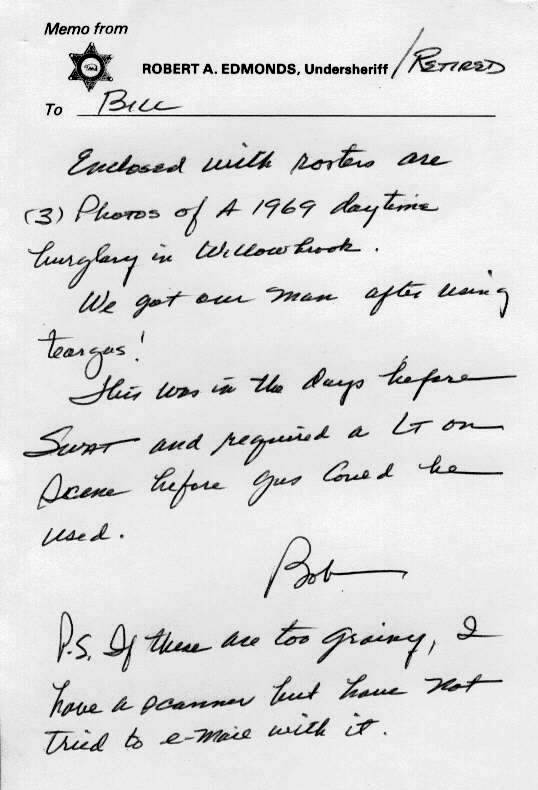 Memo from
ROBERT A. EDMONDS, Undersheriff /RETIRED
To Bill
Enclosed with rosters are
(3) Photos of A 1969 daytime
burglary in Willowbrook.
We got our man after using
teargas!
This was in the days before
SWAT and required a LT on
scene before gas could be
used.
Bob
P.S. If these are too grainy, I
have a scanner but have not
tried to e-mail with it.